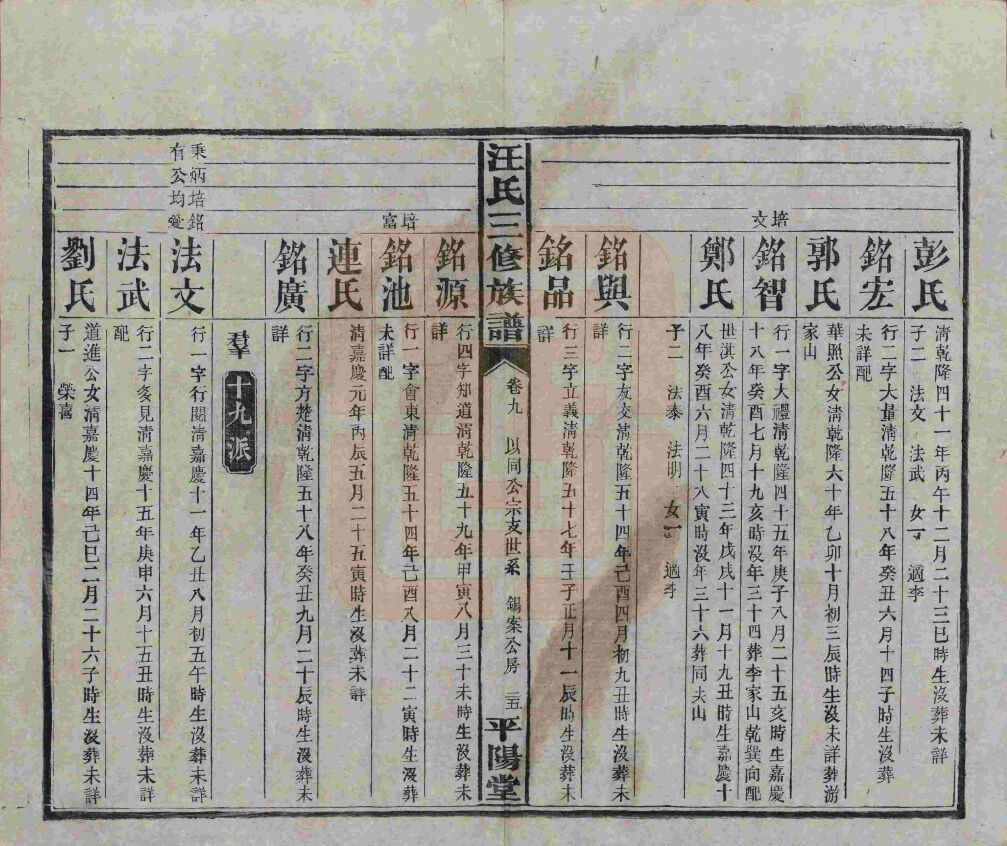 彭氏
清乾隆四十一年丙午十二月二十三巳時生沒葬未詳
子二 法文 法武 女一 適李
銘宏
行二字大量清乾隆五十八年癸丑六月十四子時生沒葬
未詳配
郭氏
華照公女清乾隆六十年乙卯十月初三辰時生沒未詳葬游
家山
培文
銘智
行一字大禮清乾隆四十五年庚子八月二十五亥時生嘉慶
十八年癸酉七月十九亥時沒年三十四葬李家山乾巽向配
鄭氏
世淇公女清乾隆四十三年戊戌十一月十九丑時生嘉慶十
八年癸酉六月二十八寅時沒年三十六葬同夫山
子二 法泰 法明 女一 適李
銘與
行二字友交清乾隆五十四年己酉四月初九丑時生沒葬未
詳
銘品
行三字立義清乾隆五十七年壬子正月十一辰時生沒葬未
詳
汪氏三修族譜
卷九 以同公宗支世系 錫案公房 三五
平陽堂
銘源
行四字知道清乾隆五十九年甲寅八月三十未時生沒葬未
詳
培富
銘池
行一字會東清乾隆五十四年己酉八月二十二寅時生沒葬
未詳配
連氏
清嘉慶元年丙辰五月二十五寅時生沒葬未詳
銘廣
行二字方楚清乾隆五十八年癸丑九月二十辰時生沒葬未
詳
羣
十九派
秉炳培銘
有公均
法文
行一字行閣清嘉慶十一年乙丑八月初五午時生沒葬未詳
法武
行二字多見清嘉慶十五年庚申六月十五丑時生沒葬未詳
配
劉氏
道進公女清嘉慶十四年己巳二月二十六子時生沒葬未詳
子一 榮喜